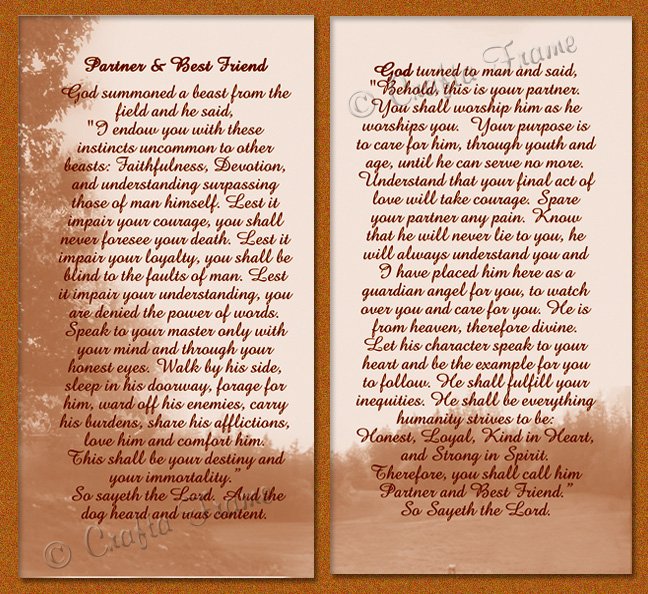 Partner & Best Friend
God summoned a beast from the
field and he said,
"I endow you with these
instincts uncommon to other
beasts: Faithfulness, Devotion,
and understanding surpassing
those of man himself. Lest it
impair your courage, you shall
never foresee your death. Lest it
impair your loyalty, you shall be
blind to the faults of man. Lest
it impair your understanding, you
are denied the power of words.
Speak to your master only with
your mind and through your
honest eyes. Walk by his side,
sleep in his doorway, forage for
him, ward off his enemies, carry
his burdens, share his afflictions,
love him and comfort him.
This shall be your destiny and
your immortality.
So sayeth the Lord. And the
dog heard and was content.
© Crafta Frame
God turned to man and said,
"Behold, this is your partner.
You shall worship him as he
worships you. Your purpose is
to care for him, through youth and
age, until he can serve no more.
Understand that your final act of
love will take courage. Spare
your partner any pain. Know
that he will never lie to you, he
will always understand you and
I have placed him here as a
guardian angel for you, to watch
over you and care for you. He is
from heaven, therefore divine.
Let his character speak to your
heart and be the example for you
to follow. He shall fulfill your
inequities. He shall be everything
humanity strives to be:
Honest, Loyal, Kind in Heart,
and Strong in Spirit.
Therefore, you shall call him
Partner and Best Friend."
So Sayeth the Lord.
© Crafta Frame